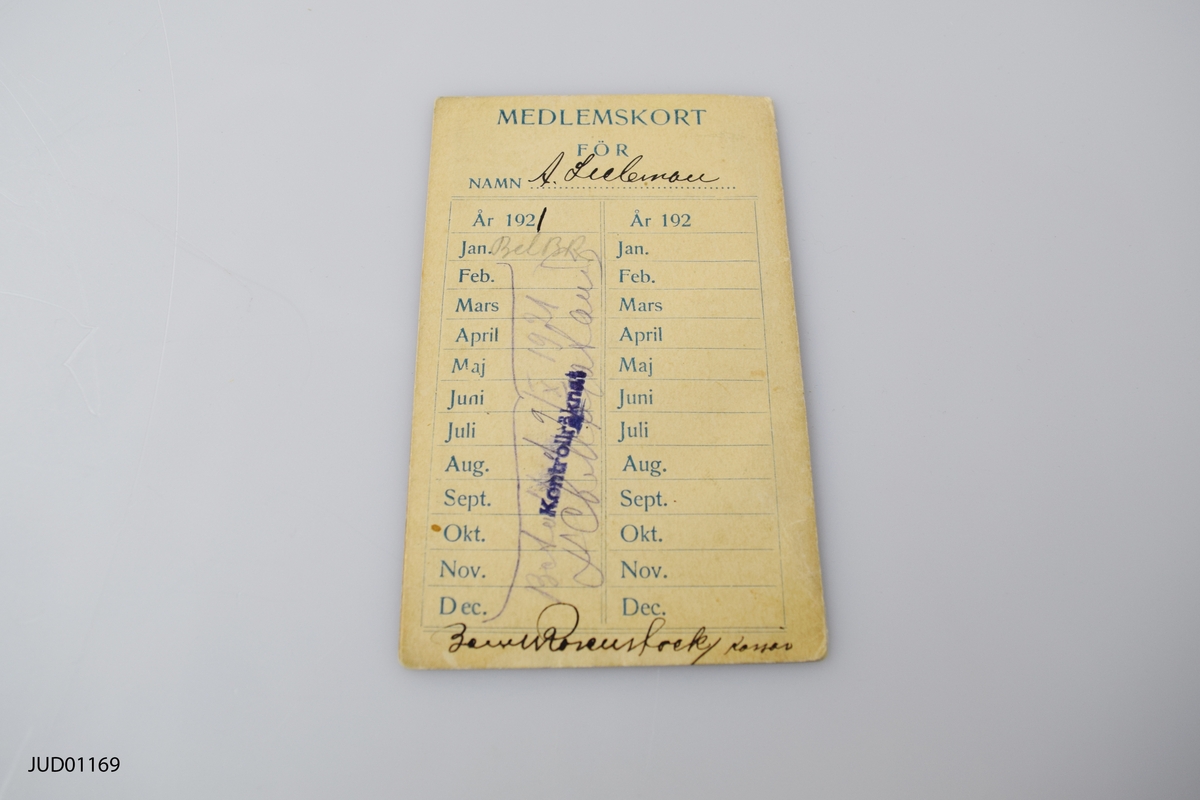 MEDLEMSKORT
FÖR
NAMN A.
År 1921 År 192
Jan. Bet BR Jan.
Feb. Feb.
Mars Mars
April April
Maj Maj
Juni Juni
Juli Juli
Aug. Aug.
Sept. Sept.
Okt. Okt.
Nov. Nov.
Dec. Dec.
1921
Kontrollräknat
Rosenstock kassör
JUD01169